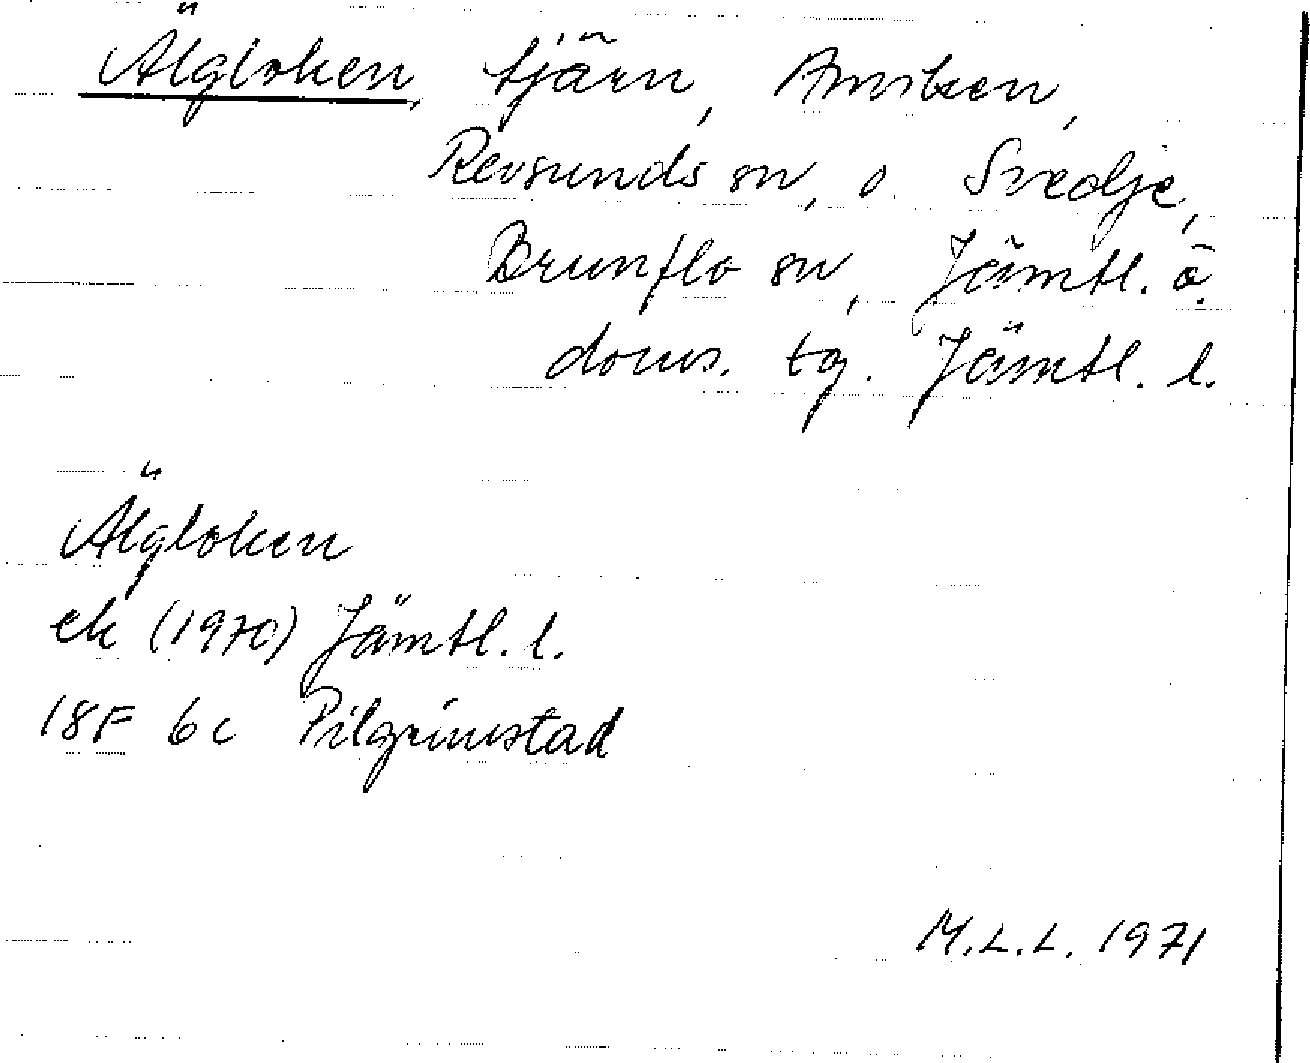 Älgloken, tjärn, Anviken,
Revsunds sn, o. Svedje,
Brunflo sn, Jämtl. ö.
doms. tg. Jämtl. l.
Älgloken
ek (1970) Jämtl. l.
18F 6c Pilgrimstad
M.L.L. 1971